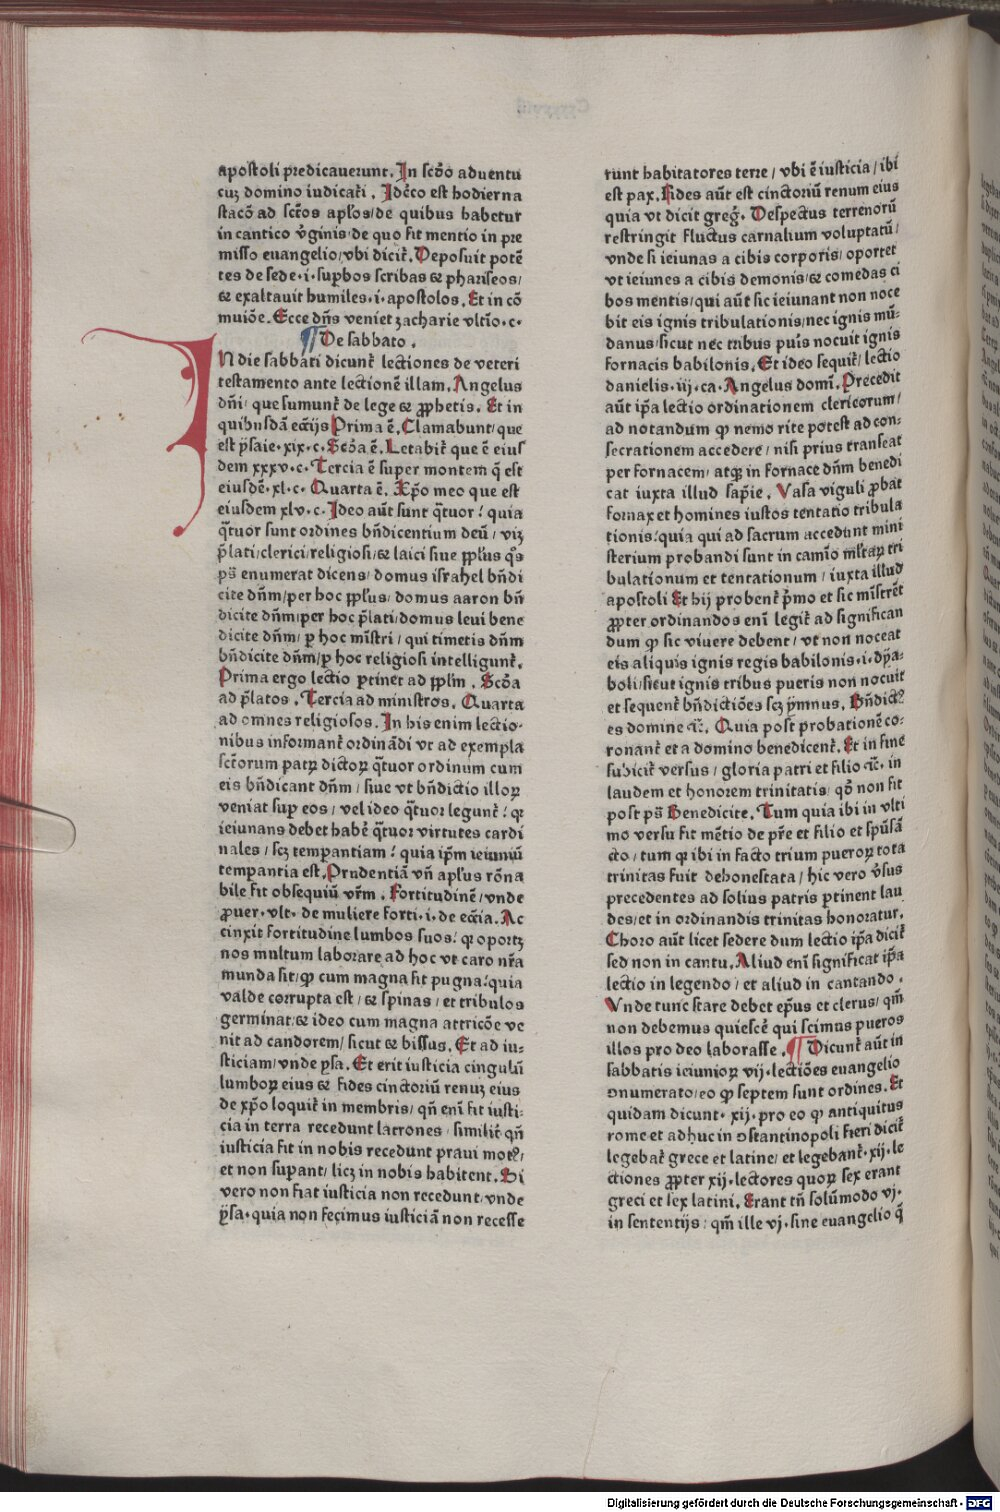 apostoli predicauerunt. In scḋo aduentu
cuꝫ domino iudicāt. Idc̄co est hodierna
stacō ad scōs apłos/ de quibus habetur
in cantico v̄ginis/ de quo fit mentio in pre
misso euangelio/ vbi dicit̄. Deposuit potē
tes de sede·i·supbos scribas ⁊ phariseos/
⁊ exaltauit humiles·i·apostolos. Et in cō
muiōe. Ecce dn̄s veniet zacharie vltīo·c·
¶ De sabbato.
IN die sabbati dicunt̄ lectiones de veteri
testamento ante lectionē illam. Angelus
dn̄i/ que sumunt̄ de lege ⁊ ꝓphetis. Et in
quibusdā ecc̄ijs Prima ē. Clamabunt/ que
est ysaie·xix·c· Scḋa ē. Letabit̄ que ē eius
dem xxxv·c· Tercia ē super montem q̄ est
eiusdē·xl·c· Quarta ē. Xp̄o meo que est
eiusdem xlv·c· Ideo aūt sunt q̄tuor: quia
q̄tuor sunt ordines bn̄dicentium deū/ viꝫ
p̄lati/ clerici/ religiosi/ ⁊ laici siue ꝓplus q̄s
ps̄ enumerat dicens/ domus israhel bn̄di
cite dn̄m/ per hoc ꝓplus/ domus aaron bn̄
dicite dn̄m/ per hoc p̄lati/ domus leui bene
dicite dn̄m/ ꝑ hoc mīstri/ qui timetis dn̄m
bn̄dicite dn̄m/ ꝑ hoc religiosi intelligunt̄.
Prima ergo lectio ꝑtinet ad ꝓplm̄. Scḋa
ad p̄latos. Tercia ad ministros. Quarta
ad omnes religiosos. In his enim lectio-
nibus informant̄ ordinādi vt ad exempla
sctōrum patꝝ dictoꝝ q̄tuor ordinum cum
eis bn̄dicant dn̄m/ siue vt bn̄dictio illoꝝ
veniat suꝑ eos/ vel ideo q̄tuor legunt̄: qꝛ
ieiunans debet habē q̄tuor virtutes cardi
nales/ scꝫ temperantiam: quia ip̄m ieiuniū
temperantia est. Prudentiā vn̄ apłus rōna
bile fit obsequiū vr̄m. Fortitudinē/ vnde
ꝓuer·vlt· de muliere forti·i·de ecc̄ia. Ac
cinxit fortitudine lumbos suos: qꝛ oportꝫ
nos multum laborare ad hoc vt caro nr̄a
munda sit/ ꝙ cum magna fit pugna: quia
valde corrupta est/ ⁊ spinas/ et tribulos
germinat/ ⁊ ideo cum magna attricōe ve
nit ad candorem/ sicut ⁊ bissus. Et ad iu-
sticiam/ vnde ysa. Et erit iusticia cingulū
lumboꝝ eius ⁊ fides cinctoriū renuꝫ eius
de xp̄o loquit̄ in membris/ qn̄ eni fit iusti-
cia in terra recedunt latrones/ similit̄ qn̄
iusticia fit in nobis recedunt praui motꝰ/
et non suꝑant/ licꝫ in nobis habitent. Si
vero non fiat iusticia non recedunt/ vnde
ysa·quia non fecimus iusticiā non recesse
runt habitatores terre/ vbi ē iusticia/ ibi
est pax. Fides aūt est cinctoriū renum eius
quia vt dicit greḡ. Despectus terrenorū
restringit fluctus carnalium voluptatū/
vnde si ieiunas a cibis corporis/ oportet
vt ieiunes a cibis demonis/ ⁊ comedas ci
bos mentis/ qui aūt sic ieiunant non noce
bit eis ignis tribulationis/ nec ignis mū-
danus/ sicut nec tribus puis nocuit ignis
fornacis babilonis. Et ideo sequit̄/ lectio
danielis·iij·ca· Angelus domī. Precedit
aūt ip̄a lectio ordinationem clericorum/
ad notandum ꝙ nemo rite potest ad con-
secrationem accedere/ nisi prius transeat
per fornacem/ atqꝫ in fornace dn̄m benedi
cat iuxta illud sapīe. Vasa viguli ꝓbat
fornax et homines iustos tentatio tribula
tionis: quia qui ad sacrum accedunt mini
sterium probandi sunt in camīo mltaꝝ tri
bulationum et tentationum/ iuxta illud
apostoli Et hij probent̄ p̄mo et sic mīstrēt
ꝓpter ordinandos enī legit̄ ad significan
dum ꝙ sic viuere debent/ vt non noceat
eis aliquis ignis regis babilonis·i·dya-
boli/ sicut ignis tribus pueris non nocuit
et sequent̄ bn̄dictiōes scꝫ ymnus. Bn̄dictꝰ
es domine ⁊c̄. Quia post probationē co-
ronant̄ et a domino benedicent̄. Et in fine
subicit̄ versus/ gloria patri et filio ⁊c̄. in
laudem et honorem trinitatis/ qḋ non fit
post ps̄ Benedicite. Tum quia ibi in vlti
mo versu fit mētio de pr̄e et filio et spūsā
cto/ tum qꝛ ibi in facto trium pueroꝝ tota
trinitas fuit dehonestata/ hic vero v̄sus
precedentes ad solius patris ꝑtinent lau
des/ et in ordinandis trinitas honoratur.
Choro aūt licet sedere dum lectio ip̄a dicit̄
sed non in cantu. Aliud enī significat ip̄a
lectio in legendo/ et aliud in cantando.
Vnde tunc stare debet ep̄us et clerus/ qm̄
non debemus quiescē qui scimus pueros
illos pro deo laborasse. ¶ Dicunt̄ aūt in
sabbatis ieiunioꝝ vij·lectiōes euangelio
ꝯnumerato/ eo ꝙ septem sunt ordines. Et
quidam dicunt·xij·pro eo ꝙ antiquitus
rome et adhuc in ꝯstantinopoli fieri dicit̄
legebāt grece et latine/ et legebant̄·xij·le
ctiones ꝓpter xij·lectores quoꝝ sex erant
greci et sex latini. Erant tn̄ solūmodo vj·
in sententijs: qm̄ ille vj·sine euangelio q̄
Digitalisierung gefördert durch die Deutsche Forschungsgemeinschaft - DFG